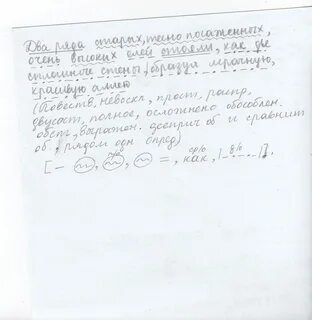 Два ряда старых, тесно посаженных,
очень высоких елей стояли, как две
сплошные стены, образуя мрачную,
красивую аллею
(Повеств, невоскл, прост, распр,
двусост, полное, осложнено обособлен.
обст, выражен. дееприч об и сравнит
об, рядом одн опред)
[- ~, ~, ~ =, как, |-.-..|].